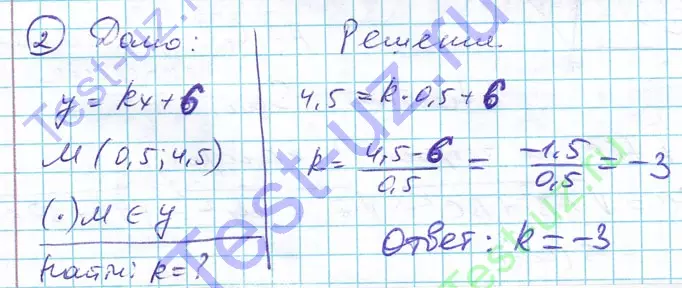 2 Дано:
y = kx + 6
M (0,5; 4,5)
(·) M ∈ y
Найти: k = ?
Решение.
4,5 = k · 0,5 + 6
k = (4,5 - 6)/0,5 = (-1,5)/0,5 = -3
Ответ: k = -3
Test-uz.ru
Test-uz.ru
Test-uz.ru